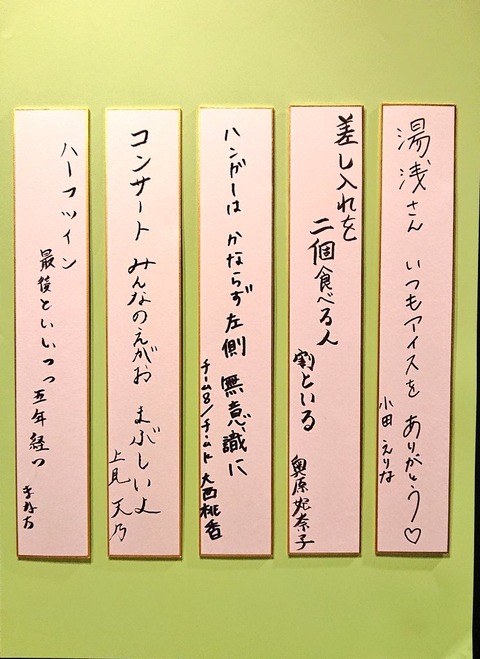 湯浅さん いつもアイスを ありがとう♡
小田 えりな
差し入れを
二個食べる人
割といる
奥原妃奈子
ハンガーは かならず左側 無意識に
チーム8/チームK 大西桃香
コンサート みんなのえがお まぶしいよ
上見 天乃
ハーフツイン
最後といいつつ 五年経つ